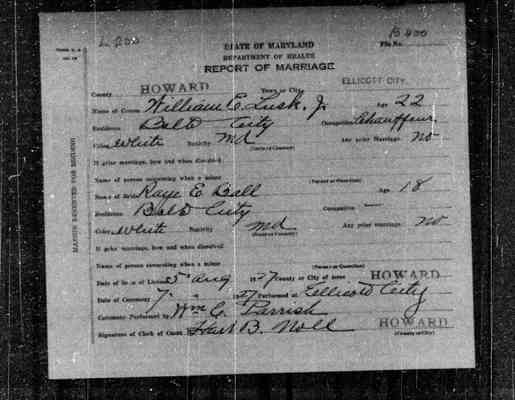 L 200
B 400
STATE OF MARYLAND
File No.
DEPARTMENT OF HEALTH
REPORT OF MARRIAGE
County HOWARD Town or City ELLICOTT CITY
Name of Groom William E. Lusk, Jr. Age 22
Residence Balto City Occupation Chauffeur
Color White Nativity Md Any prior Marriage. no
(State or Country)
If prior marriage, how and when dissolved
Name of person consenting when a minor
(Parent or Guardian)
Name of Bride Raye E. Ball Age 18
Residence Balto City Occupation
Color White Nativity Md Any prior marriage. no
(State or Country)
If prior marriage, how and when dissolved
Name of person consenting when a minor
(Parent or Guardian)
Date of Issue of License 5" Aug 1927 County or City of issue HOWARD
Date of Ceremony 7" " 1927 Performed at Ellicott City
Ceremony Performed by Wm C. Parrish
HOWARD
Signature of Clerk of Court Hart B. Noll
(County or City)
MARGIN RESERVED FOR BINDING